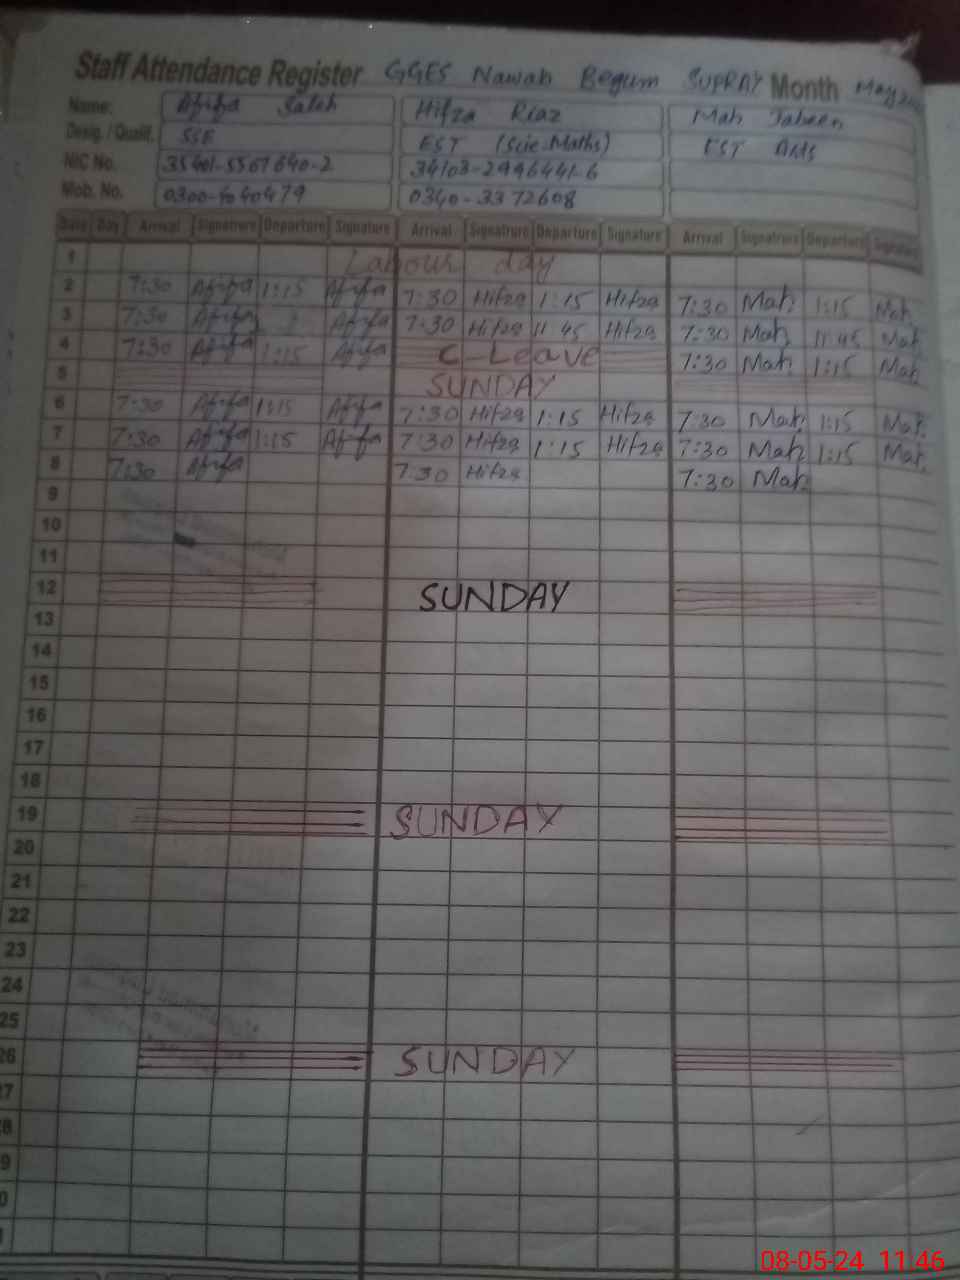 Staff Attendance Register GGES Nawab Begum SUPRAY Month May
Name: Afifa Saleh Hifza Riaz Mah Jabeen
Desig. / Qualif. SSE EST (Scie-Maths) EST Arts
NIC No. 35401-5567640-2 34103-2996441-6
Mob. No. 0340-3372608
Date Day Arrival Signatrure Departure Signature Arrival Signatrure Departure Signature Arrival Signatrure Departure Signature
1 Labour day
2 7:30 Afifa 1:15 Afifa 7:30 Hifza 1:15 Hifza 7:30 Mah 1:15 Mah
3 7:30 Afifa Afifa 7:30 Hifza 11:45 Hifza 7:30 Mah 11:45 Mah
4 7:30 Afifa 1:15 Afifa C-Leave 7:30 Mah 1:15 Mah
5 SUNDAY
6 7:30 Afifa 1:15 Afifa 7:30 Hifza 1:15 Hifza 7:30 Mah 1:15 Mah
7 7:30 Afifa 1:15 Afifa 7:30 Hifza 1:15 Hifza 7:30 Mah 1:15 Mah
8 7:30 Afifa 7:30 Hifza 7:30 Mah
9
10
11
12 SUNDAY
13
14
15
16
17
18
19 SUNDAY
20
21
22
23
24
25
26 SUNDAY
7
8
9
0
08-05-24 11:46